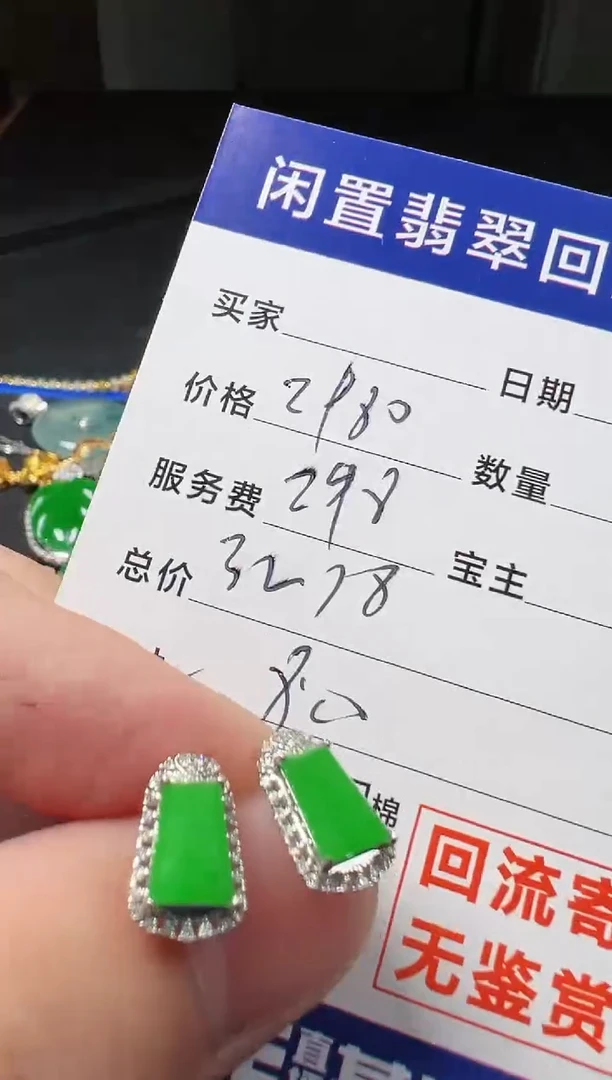 闲置翡翠回
买家 日期
价格 2980 数量
服务费 298
宝主
总价 3278
8.0
棉
回流寄
无鉴赏